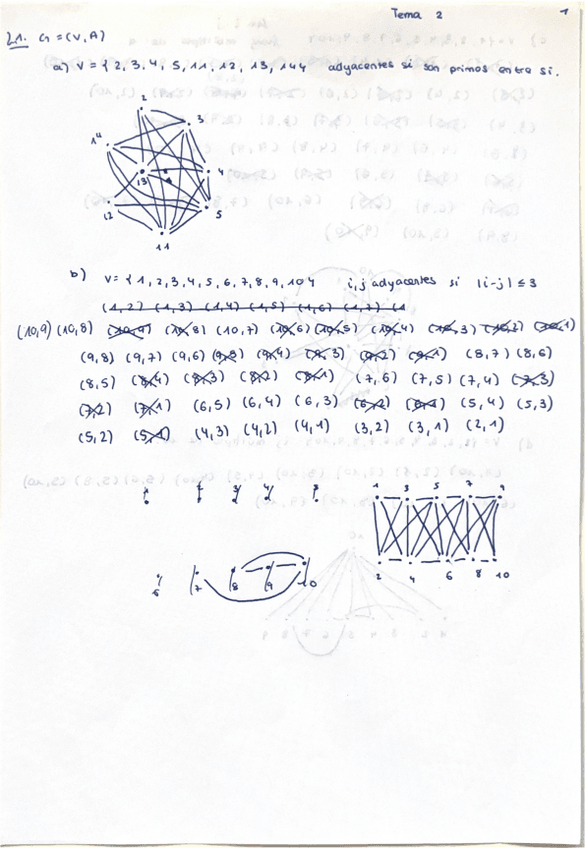 Tema 2
1
2.1. G = (V, A)
a) V = { 2, 3, 4, 5, 11, 12, 13, 14 } adyacentes si son primos entre sí.
2
3
14
4
13
12
5
11
b) V = { 1, 2, 3, 4, 5, 6, 7, 8, 9, 10 } i, j adyacentes si |i-j| ≤ 3
(1,2) (1,3) (1,4) (1,5) (1,6) (1,7) (1
(10,9) (10,8) (10,9) (10,8) (10,7) (10,6) (10,5) (10,4) (10,3) (10,2) (10,1)
(9,8) (9,7) (9,6) (9,5) (9,4) (9,3) (9,2) (9,1) (8,7) (8,6)
(8,5) (8,4) (8,3) (8,2) (8,1) (7,6) (7,5) (7,4) (7,3)
(7,2) (7,1) (6,5) (6,4) (6,3) (6,2) (6,1) (5,4) (5,3)
(5,2) (5,1) (4,3) (4,2) (4,1) (3,2) (3,1) (2,1)
1 3 5 7 9
2 4 6 8 10
6 7 8 9 10